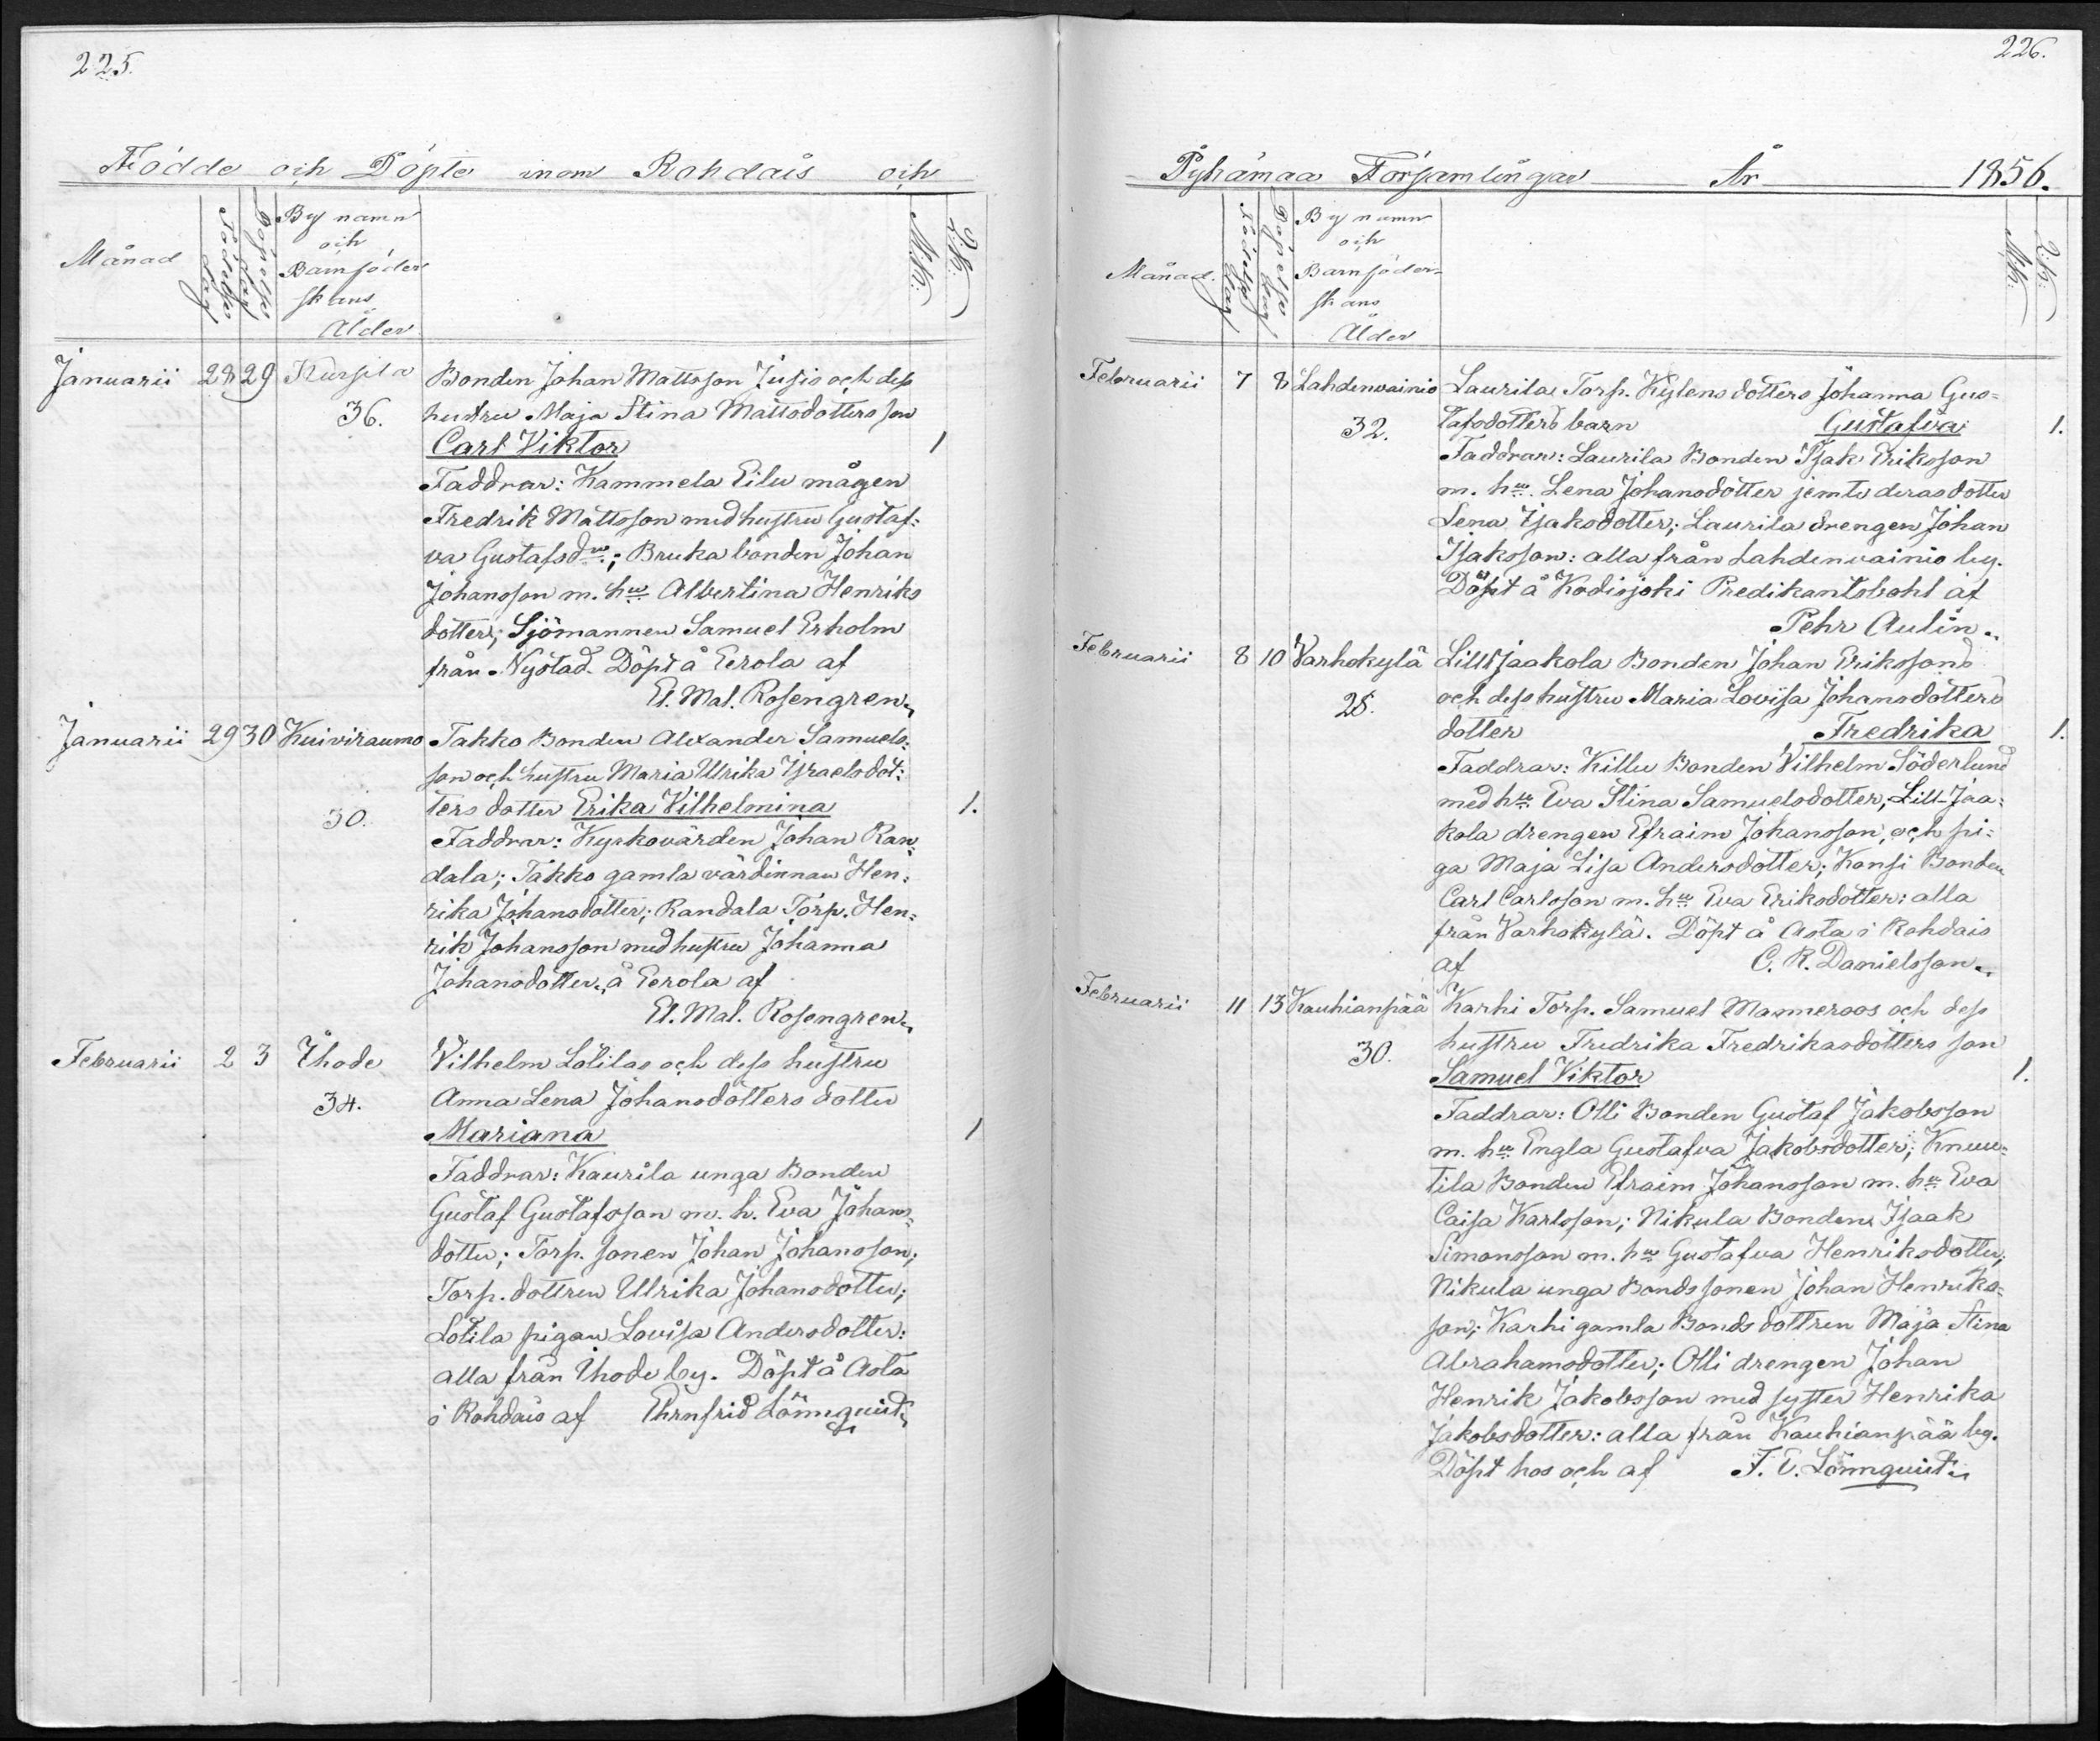 225.
Födde och Döpte inom Rohdais och
Månad
Födelse dag
Döpelse dag
By namn
och
Barnföder
skans
Ålder
M.K:
Q.K:
Januarii 28 29 Kurpila Bonden Johan Mattsson Jusio och dess
36. hustru Maja Stina Mattsdotters son
Carl Viktor 1
Faddrar: Kammela Eilu mågen
Fredrik Mattsson med hustru Gustaf:
va Gustafsdr; Bruka bonden Johan
Johansson m. hu Albertina Henriks
dotter; Sjömannen Samuel Erholm
från Nystad. Döpt å Eerola af
El. Mal. Rosengren
Januarii 29 30 Kuiviraumo Takko Bonden Alexander Samuels:
son och hustru Maria Ulrika Israelsdot:
30. ters dotter Erika Vilhelmina 1.
Faddrar: Kyrkovärden Johan Ran:
dala; Takko gamla värdinnan Hen:
rika Johansdotter; Randala Torp. Hen:
rik Johansson med hustru Johanna
Johansdotter, å Eerola af
El. Mal. Rosengren
Februarii 2 3 Ihode Vilhelm Lötilas och dess hustru
34. Anna Lena Johansdotters dotter
Mariana 1
Faddrar: Kaurila unga Bonden
Gustaf Gustafsson m. h. Eva Johans:
dotter; Torp. sonen Johan Johansson;
Torp. dottren Ulrika Johansdotter;
Lötila pigan Lovisa Andersdotter:
alla från Ihode by. Döpt å Asta
i Rohdais af Ehrnfrid Lönnquist
226.
Pyhämaa Församlingar År 1856.
Månad.
Födelse dag
Döpelse dag
By namn
och
Barnföder-
skans
Ålder
M.K:
Q.K:
Februarii 7 8 Lahdenvainio Laurila Torp. Kylens dotters Johanna Gus=
32. tafsdotters barn Gustafva 1.
Faddrar: Laurila Bonden Isak Eriksson
m. hu. Lena Johansdotter jemte deras dotter
Lena Isaksdotter; Laurila drengen Johan
Isaksson: alla från Lahdenvainio by.
Döpt å Kodisjoki Predikantsbohl af
Pehr Aulin
Februarii 8 10 Varhokylä Lill Jaakola Bonden Johan Erikssons
28. och dess hustru Maria Lovisa Johansdotters
dotter Fredrika 1.
Faddrar: Killu Bonden Vilhelm Söderlund
med hu Eva Stina Samuelsdotter; Lill-Jaa:
kola drengen Efraim Johansson, och pi:
ga Maja Lisa Andersdotter; Konsi Bonden
Carl Carlsson m. hu Eva Eriksdotter: alla
från Varhokylä. Döpt å Asta i Rohdais
af C. R. Danielsson
Februarii 11 13 Kauhianpää Karhi Torp. Samuel Manneroos och dess
30. hustru Fredrika Fredrikasdotters son
Samuel Viktor 1.
Faddrar: Olli Bonden Gustaf Jakobsson
m. hu Engla Gustafva Jakobsdotter; Knuu:
tila Bonden Efraim Johansson m. hu Eva
Caisa Karlsson; Nikula Bonden Isaak
Simonsson m. hu Gustafva Henriksdotter;
Nikula unga Bondssonen Johan Henriks=
son; Karhi gamla Bonds dottren Maja Stina
Abrahamsdotter; Olli drengen Johan
Henrik Jakobsson med syster Henrika
Jakobsdotter: alla från Kauhianpää by.
Döpt hos och af F. E. Lönnquist